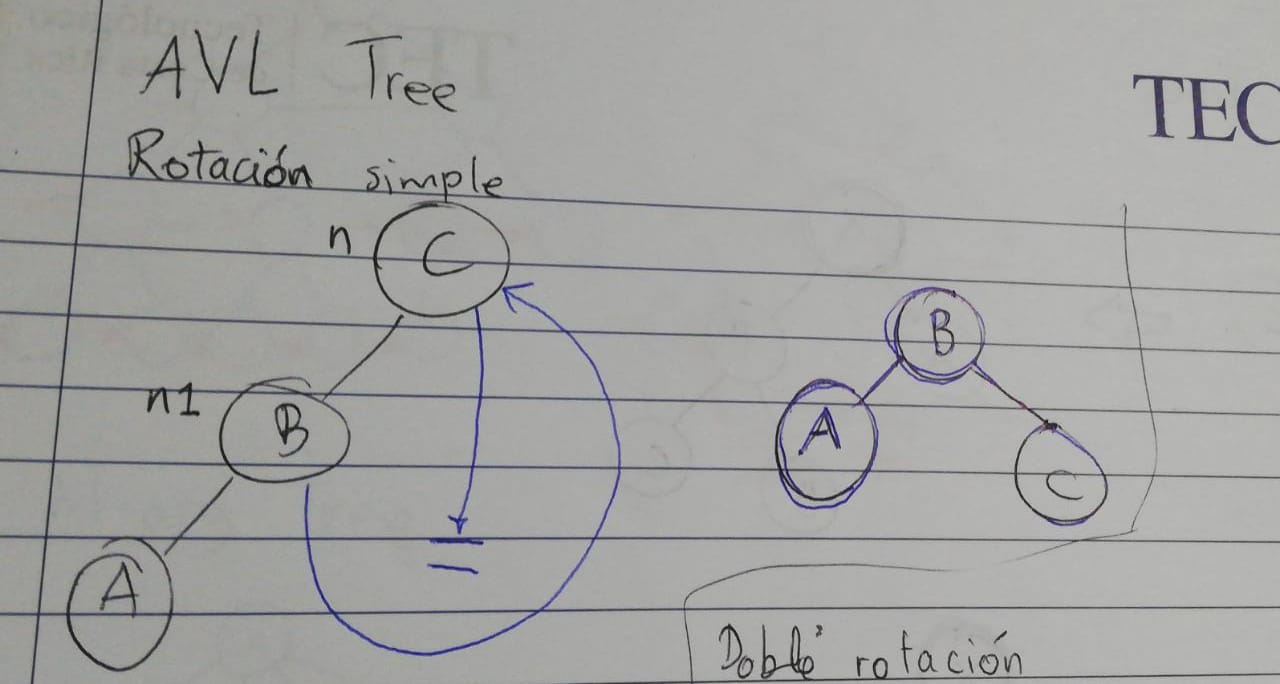 AVL Tree
TEC
Rotación simple
n
C
B
n1
B
A
C
A
Doble rotación